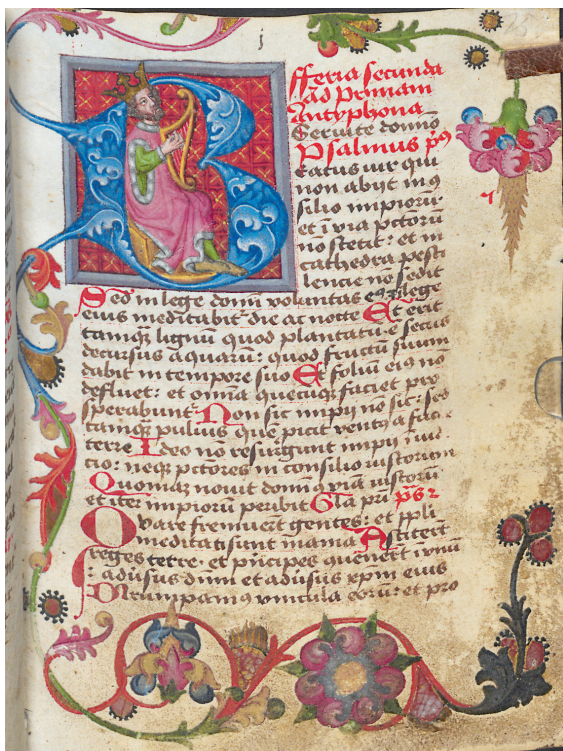 25
j
fferia secunda
ad primam
Antyphona
Seruite domino
Psalmus p͂us
B eatus uir qui
non abijt in ꝯ
silio impiorū·
et ī via pctorū
no stetit: et in
cathedra pesti
lencie nō sedit
Sed in lege domī voluntas eꝰ et ī lege
eius meditabit᷑ die ac nocte Et erit
tamqꝫ lignū quod plantatū e secus
decursus aquarū: quod fructū suum
dabit in tempore suo Et foliū eiꝰ nō
defluet: et omīa quecūqꝫ faciet pro
sperabunt᷑ Non sic impij nō sic: sed
tamqꝫ puluis quē ꝓicit ventꝰ a facie
terre Ideo nō resurgunt impij ī iudi
cio: neqꝫ pctores in consilio iustorum
Quoniaꝫ nouit domīꝰ viā iustorū
et iter impiorum peribit Gla pr̄i p̄s 2
Quare fremuerūt gentes: et ppli
meditati sunt inania Astiterūt
reges terre· et pīncipes ꝯuenerūt ī vnū
: adūsus dnm et adūsus xpm eius
Dirumpamꝰ vincula eorū: et pro